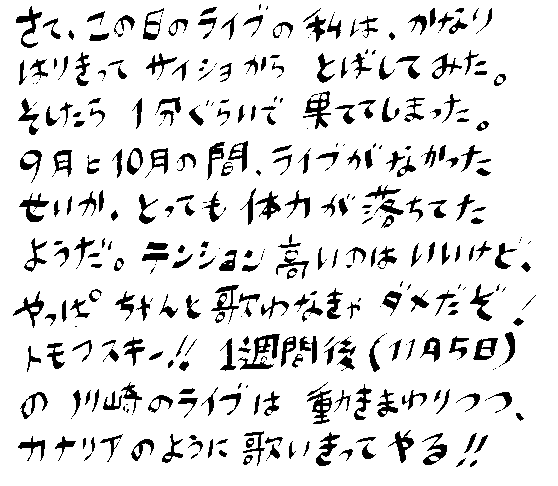 さて、この日のライブの私は、かなり
はりきって サイショから とばしてみた。
そしたら 1分ぐらいで 果ててしまった。
9月と10月の間、ライブがなかった
せいか、とっても 体力が 落ちてた
ようだ。テンション高いのは いいけど、
やっぱ ちゃんと 歌わなきゃ ダメだぞ!
トモフスキー!! 1週間後(11月5日)
の 川崎のライブは 動きまわりつつ、
カナリアのように 歌いきってやる!!